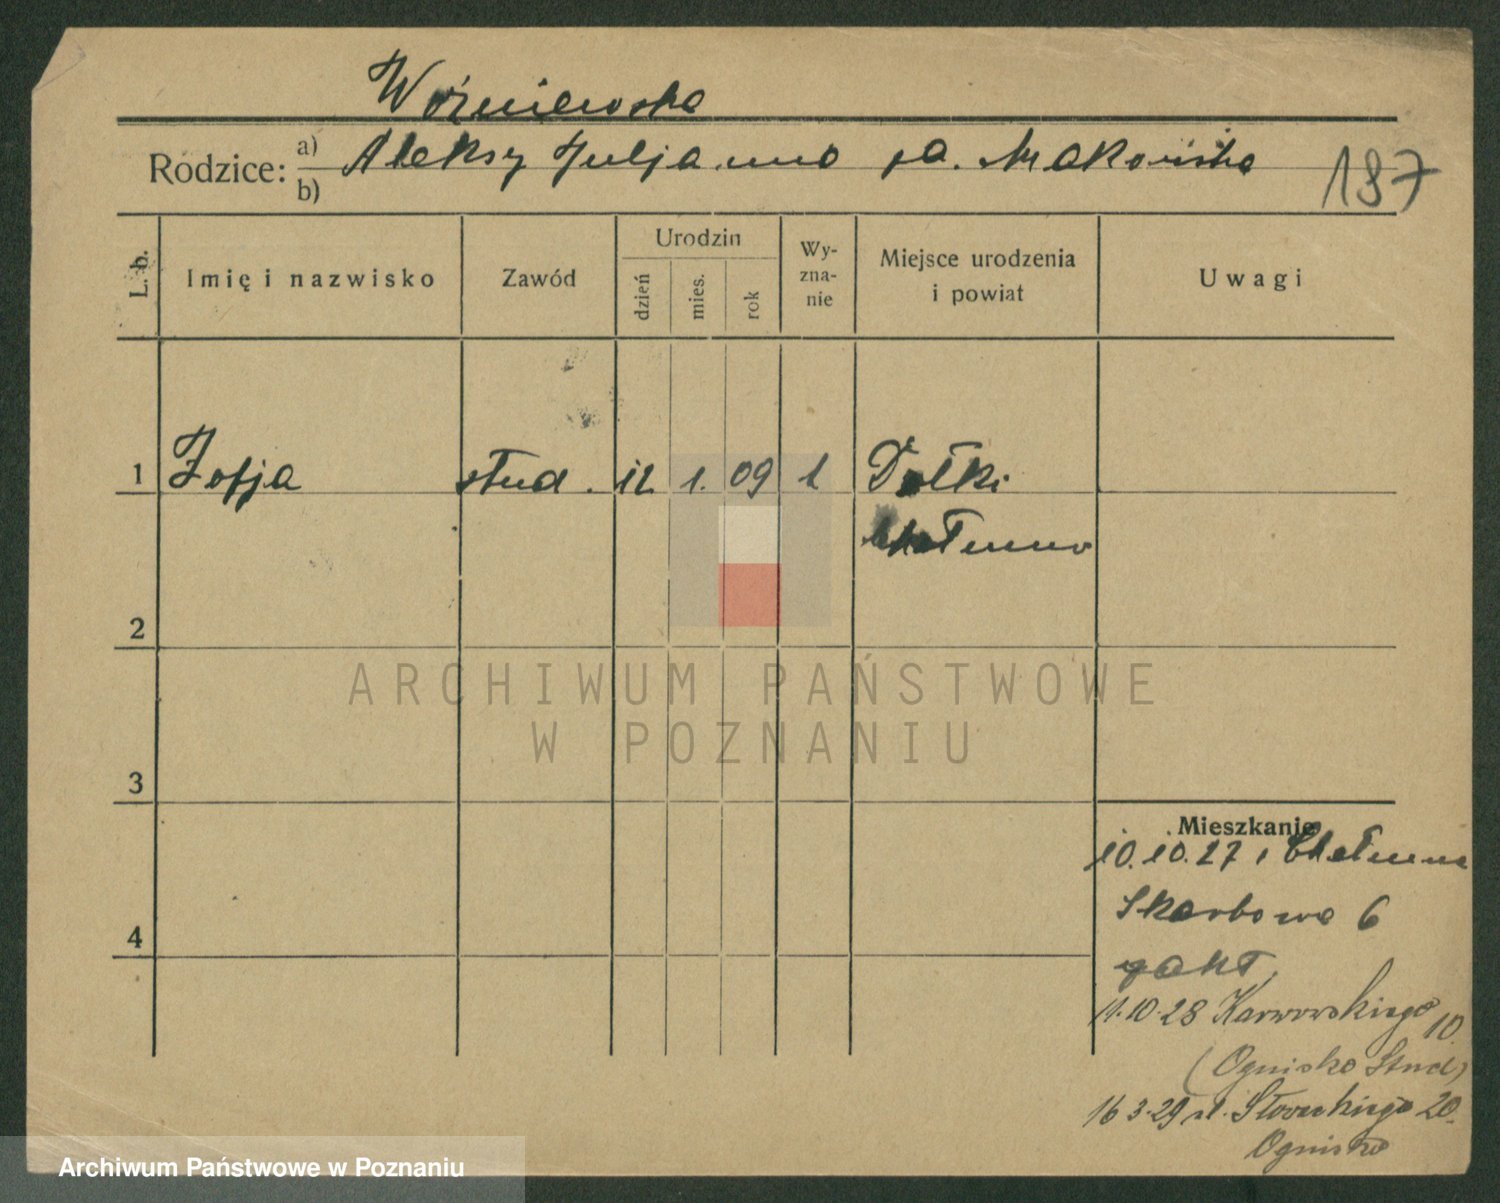 Woźniewska
Rodzice: a) Aleksy Juljanna za. Makowska
b)
187
L. b.
Imię i nazwisko
Zawód
Urodzin
dzień
mies.
rok
Wy-
zna-
nie
Miejsce urodzenia
i powiat
Uwagi
1 Zofja stud. 12 1. 09 1 Dołki
Chełmno
2
3
4
Mieszkanie
10.10.27 Chełmno
Skarbowa 6
11.10.28 Karwowskiego 10.
(Ognisko Stud)
16 3.29 Słowackiego 20.
Ognisko
ARCHIWUM PAŃSTWOWE
W POZNANIU
Archiwum Państwowe w Poznaniu